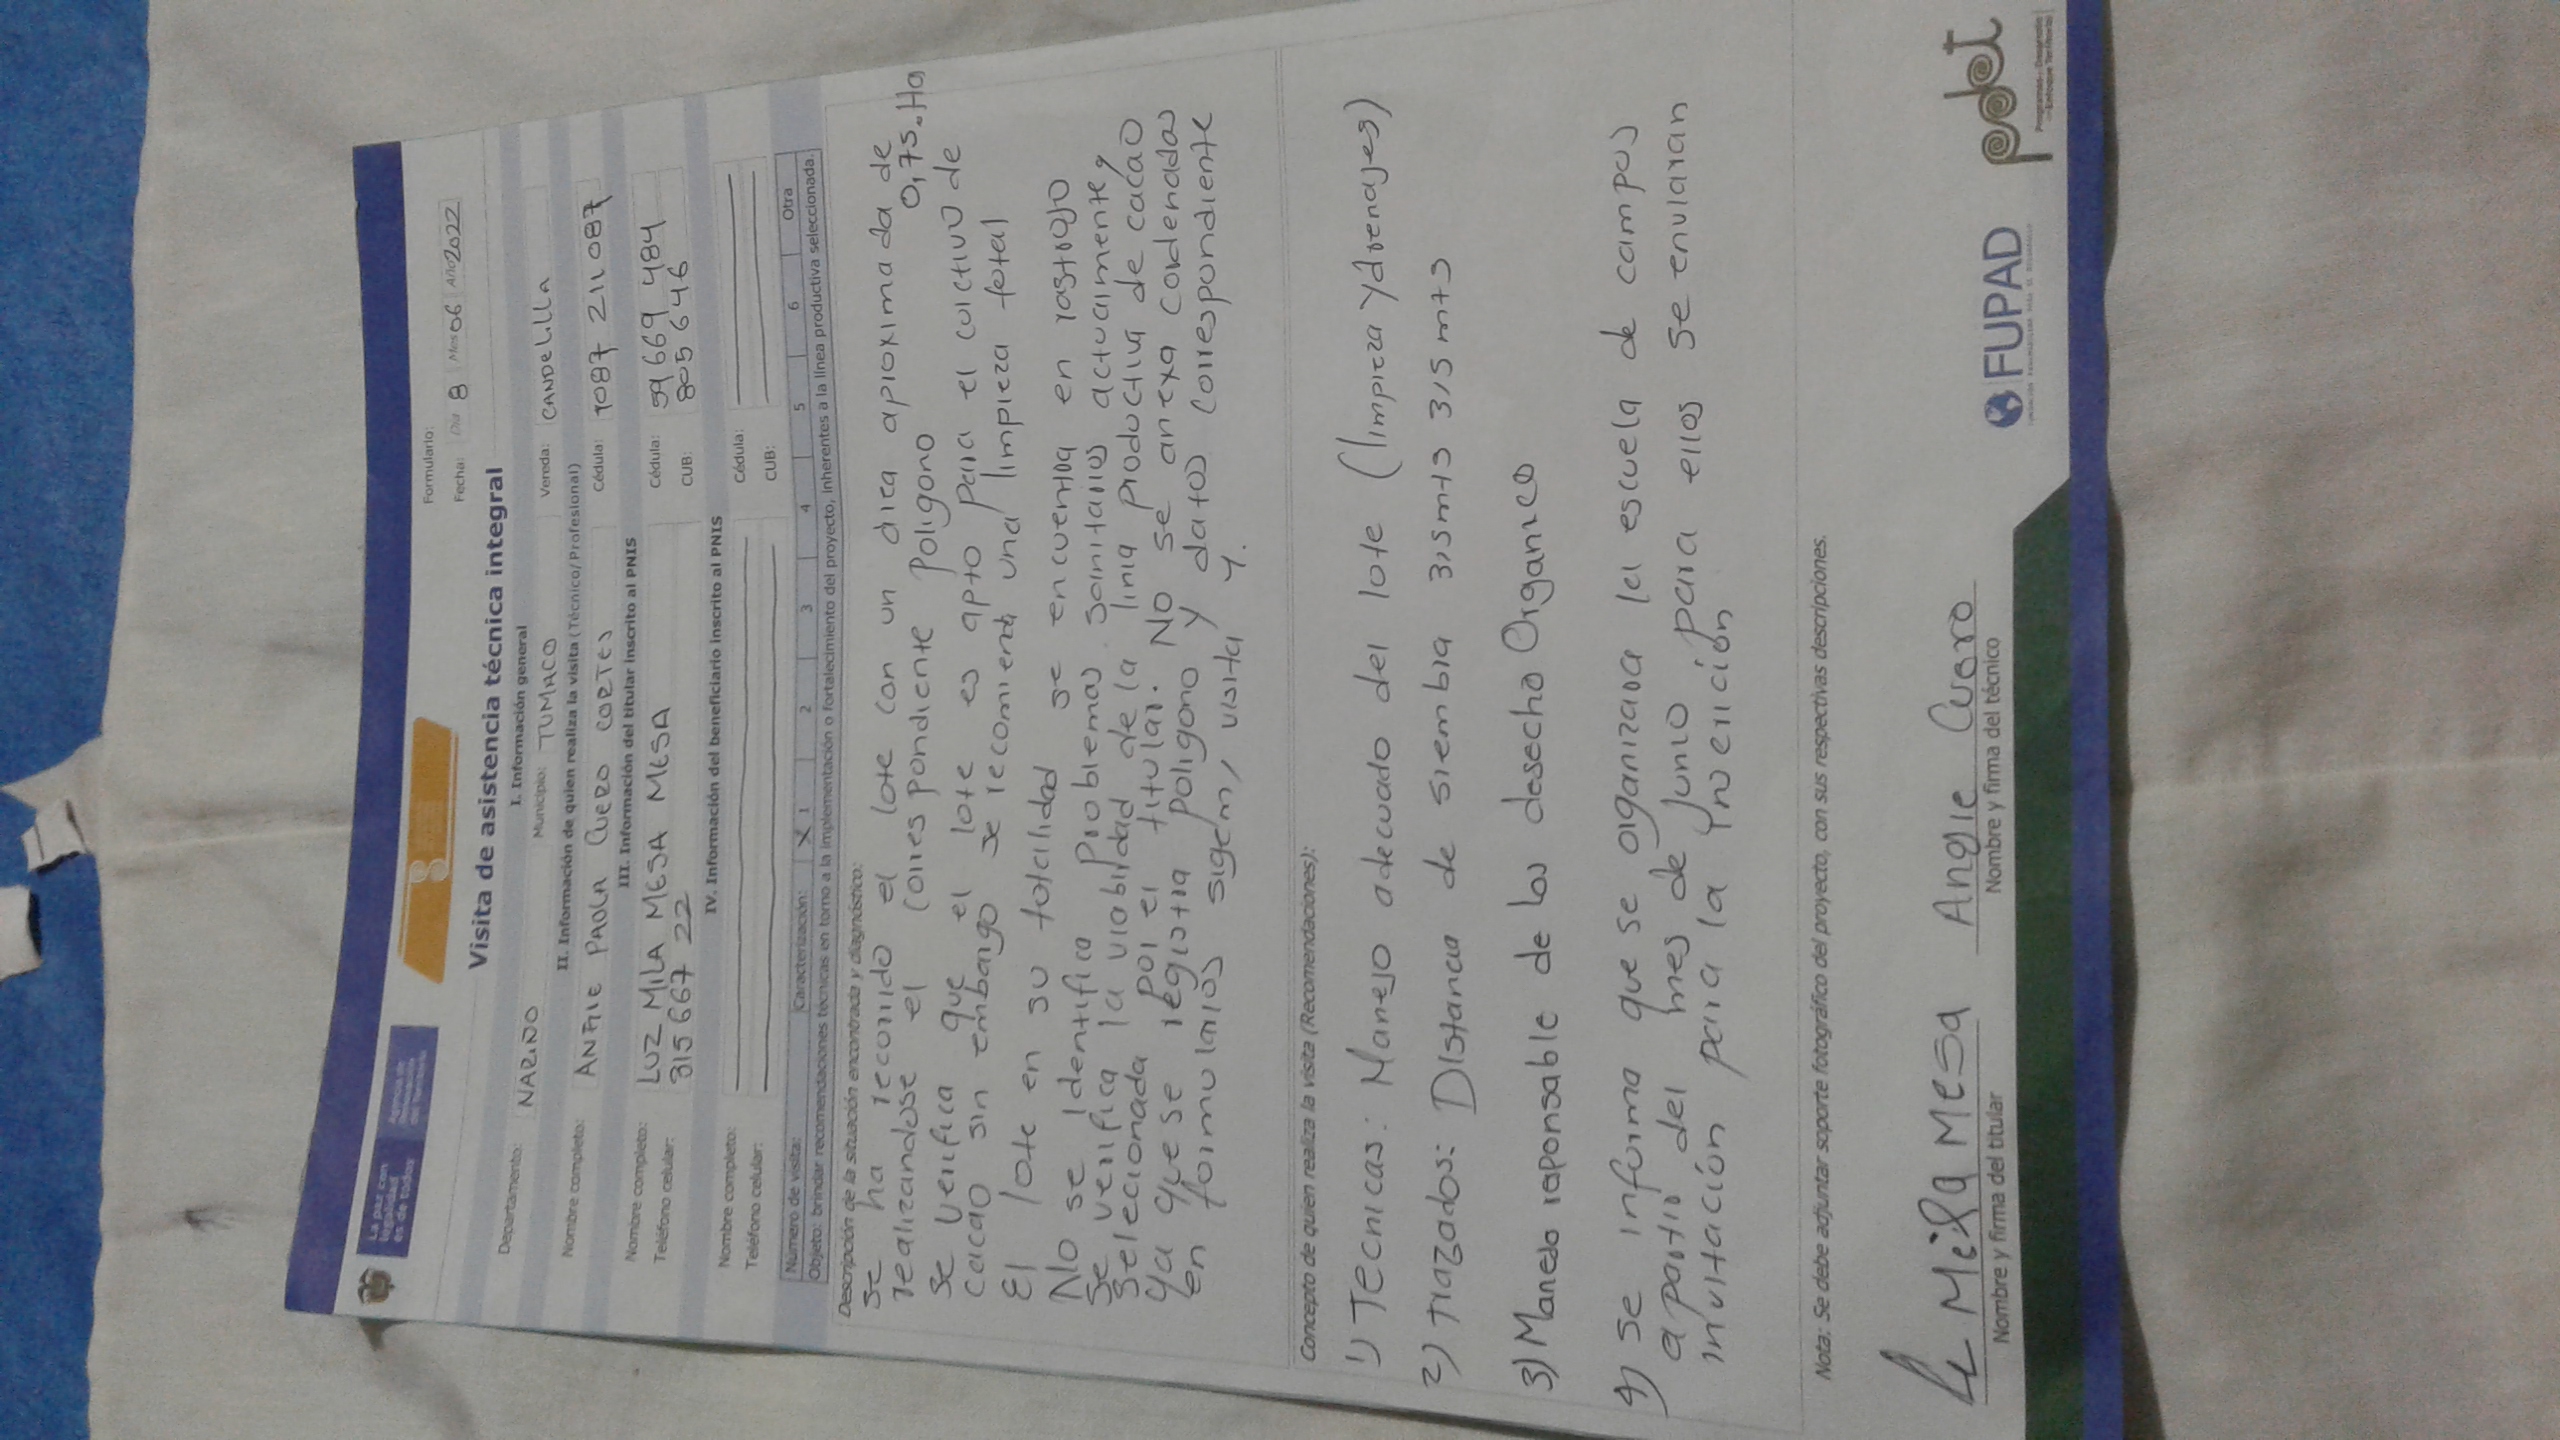 La paz con
legalidad
es de todos
Agencia de
Renovación
del Territorio
Formulario:
Fecha: Día 8 Mes 06 Año 2022
Visita de asistencia técnica integral
I. Información general
Departamento: NARIÑO Municipio: TUMACO Vereda: CANDELILLA
II. Información de quien realiza la visita (Técnico/Profesional)
Nombre completo: ANFIE PAOLA CUERO CORTES Cédula: 1087 211 087
III. Información del titular inscrito al PNIS
Nombre completo: LUZ MILA MESA MESA Cédula: 59 669 484
Teléfono celular: 315 667 22 CUB: 805646
IV. Información del beneficiario inscrito al PNIS
Nombre completo: Cédula:
Teléfono celular: CUB:
Número de visita: Caracterización: X 1 2 3 4 5 6 Otra
Objeto: brindar recomendaciones técnicas en torno a la implementación o fortalecimiento del proyecto, inherentes a la línea productiva seleccionada.
Descripción de la situación encontrada y diagnóstico:
Se ha recorrido el lote con un area aproximada de
realizandose el correspondiente Poligono 0,75.Ha
Se verifica que el lote es apto para el cultivo de
cacao sin embargo se recomienda una limpieza total
El lote en su totalidad se encuentra en rastrojo
No se identifica problemas sanitarios actualmente,
Se verifica la viabilidad de la linia productiva de cacao
selecionada por el titular. No se anexa cordenadas
Ya que se registra poligono y datos correspondiente
en formularios sigem, visita 1.
Concepto de quien realiza la visita (Recomendaciones):
1) Tecnicas: Manejo adecuado del lote (limpieza y drenajes)
2) trazados: Distancia de siembra 3,5mts 3,5mts
3) Manedo responsable de los desecho Organico
4) se informa que se organizara la escuela de campos
apartir del mes de junio para ellos se enviaran
invitación para la
Nota: Se debe adjuntar soporte fotográfico del proyecto, con sus respectivas descripciones.
Mila Mesa
Nombre y firma del titular
Angie Cuero
Nombre y firma del técnico
FUPAD
pdet
Programas de Desarrollo
con Enfoque Territorial